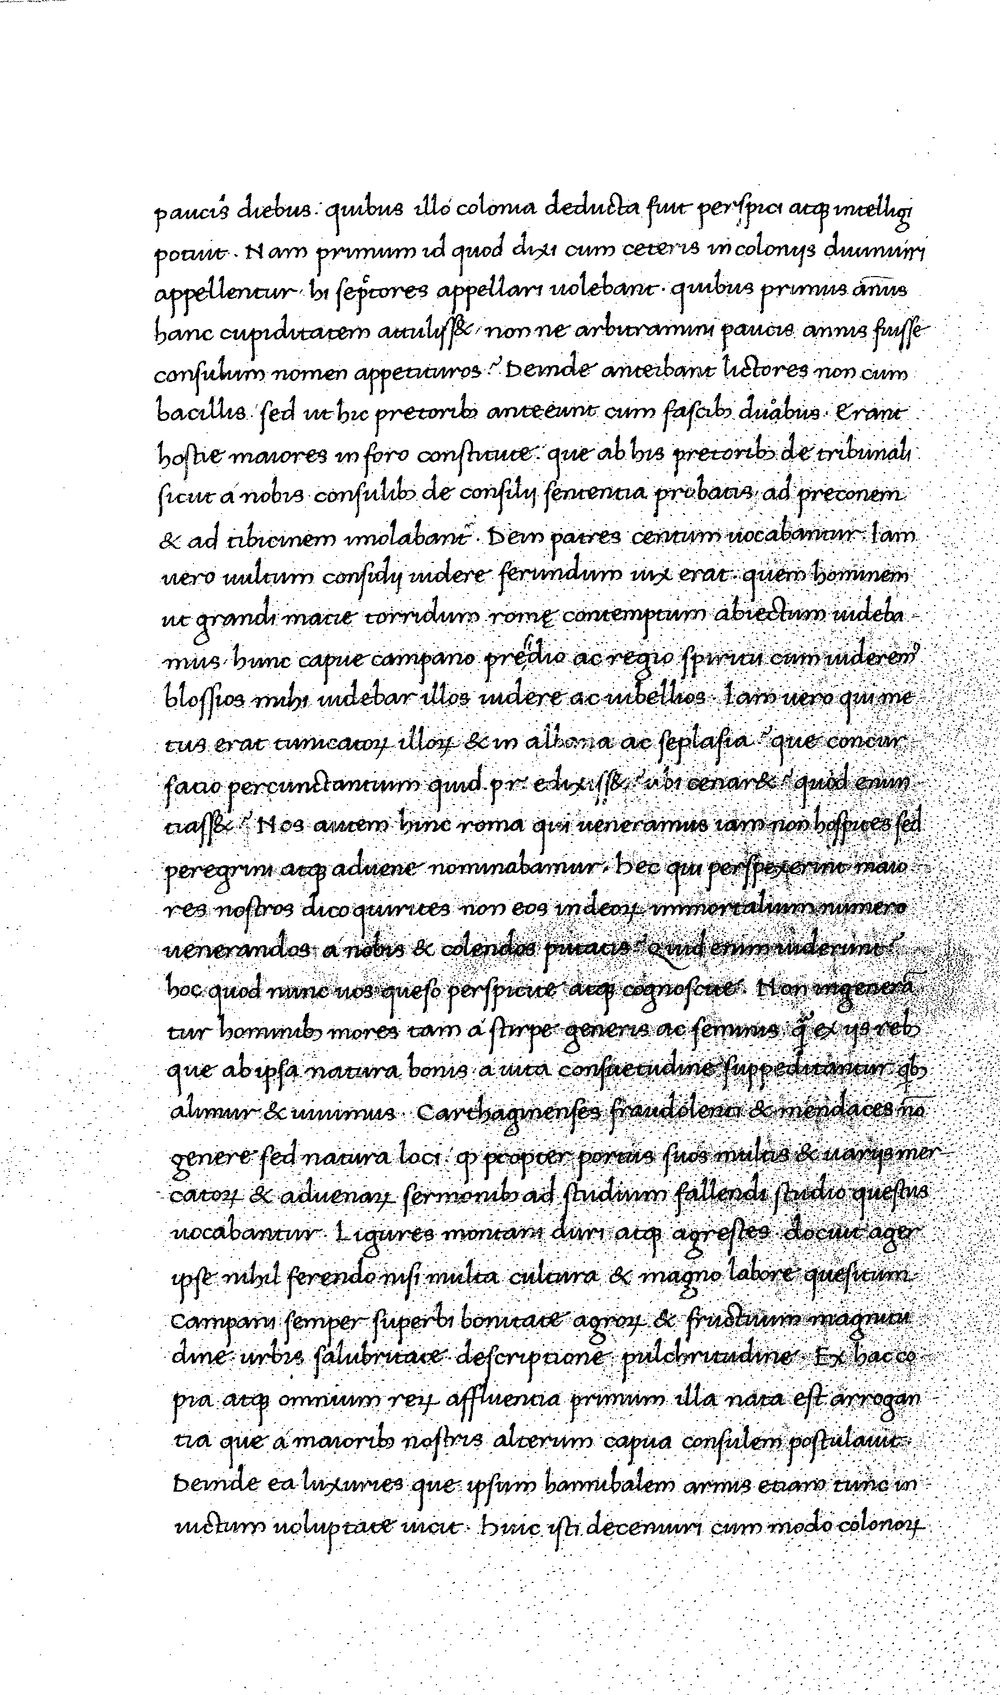 paucis diebus. quibus illo colonia deducta fuit perspici atqꝫ intelligi
potuit. Nam primum id quod dixi cum ceteris in colonijs duumuiri
appellentur. hi sep̃tores appellari uolebant. quibus primus an̄us
hanc cupiditatem attuliss&, non ne arbitramini paucis annis fuisse
consulum nomen appetituros? Deinde anteibant lictores non cum
bacillis. sed ut hic pretoribꝫ anteeunt cum fascibꝫ duabus. Erant
hostie maiores in foro constitute. que ab his pretoribꝫ de tribunali
sicut a nobis consulibꝫ de consilij sententia probatis ad preconem
& ad tibicinem imolabant̃. Dein patres centum uocabantur. Iam
uero uultum considij uidere ferundum uix erat. quem hominem
ut grandi macie torridum romę contemptum abiectum uideba
mus. hunc capue campano predio ac regio spiritu cum uiderem9
blossios mihi uidebar illos uidere ac uibellios. Iam uero qui me
tus erat tunicatoꝝ illoꝝ & in albana ac seplasia? que concur
satio percunctantium quid pr. edixiss&? ubi cenar&? quod enun
tiass&? Nos autem hinc roma qui ueneramus iam non hospites sed
peregrini atqꝫ aduene nominabamur. hec qui perspexerint maio
res nostros dico quirites non eos in deoꝝ immortalium numero
uenerandos a nobis & colendos putatis? Quid enim uiderunt?
hoc quod nunc uos queso perspicite atqꝫ cognoscite. Non ingenerā
tur hominibꝫ mores tam a stirpe generis ac seminis. q̃ ex ijs rebꝫ
que ab ipsa natura bonis a uita consuetudine suppeditantur. qbꝫ
alimur & uiuimus. Carthaginenses fraudolenti & mendaces nō
genere sed natura loci. qꝫ propter portus suos multis & uarijs mer
catoꝝ & aduenaꝝ sermonibꝫ ad studium fallendi studio questus
uocabantur. Ligures montani duri atqꝫ agrestes. docuit ager
ipse nihil ferendo nisi multa cultura & magno labore quesitum.
Campani semper superbi bonitate agroꝝ & fructuum magnitu
dine. urbis salubritate. descriptione. pulchritudine. Ex hac co
pia atqꝫ omnium reꝝ affluentia primum illa nata est arrogan
tia que a maioribꝫ nostris alterum capua consulem postulauit.
Deinde ea luxuries que ipsum hannibalem armis etiam tunc in
uictum uoluptate uicit. huic isti decemuiri cum modo colonoꝝ